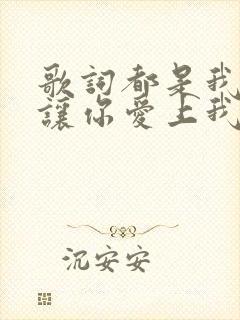 歌詞都是我
讓你愛上我
沉安安